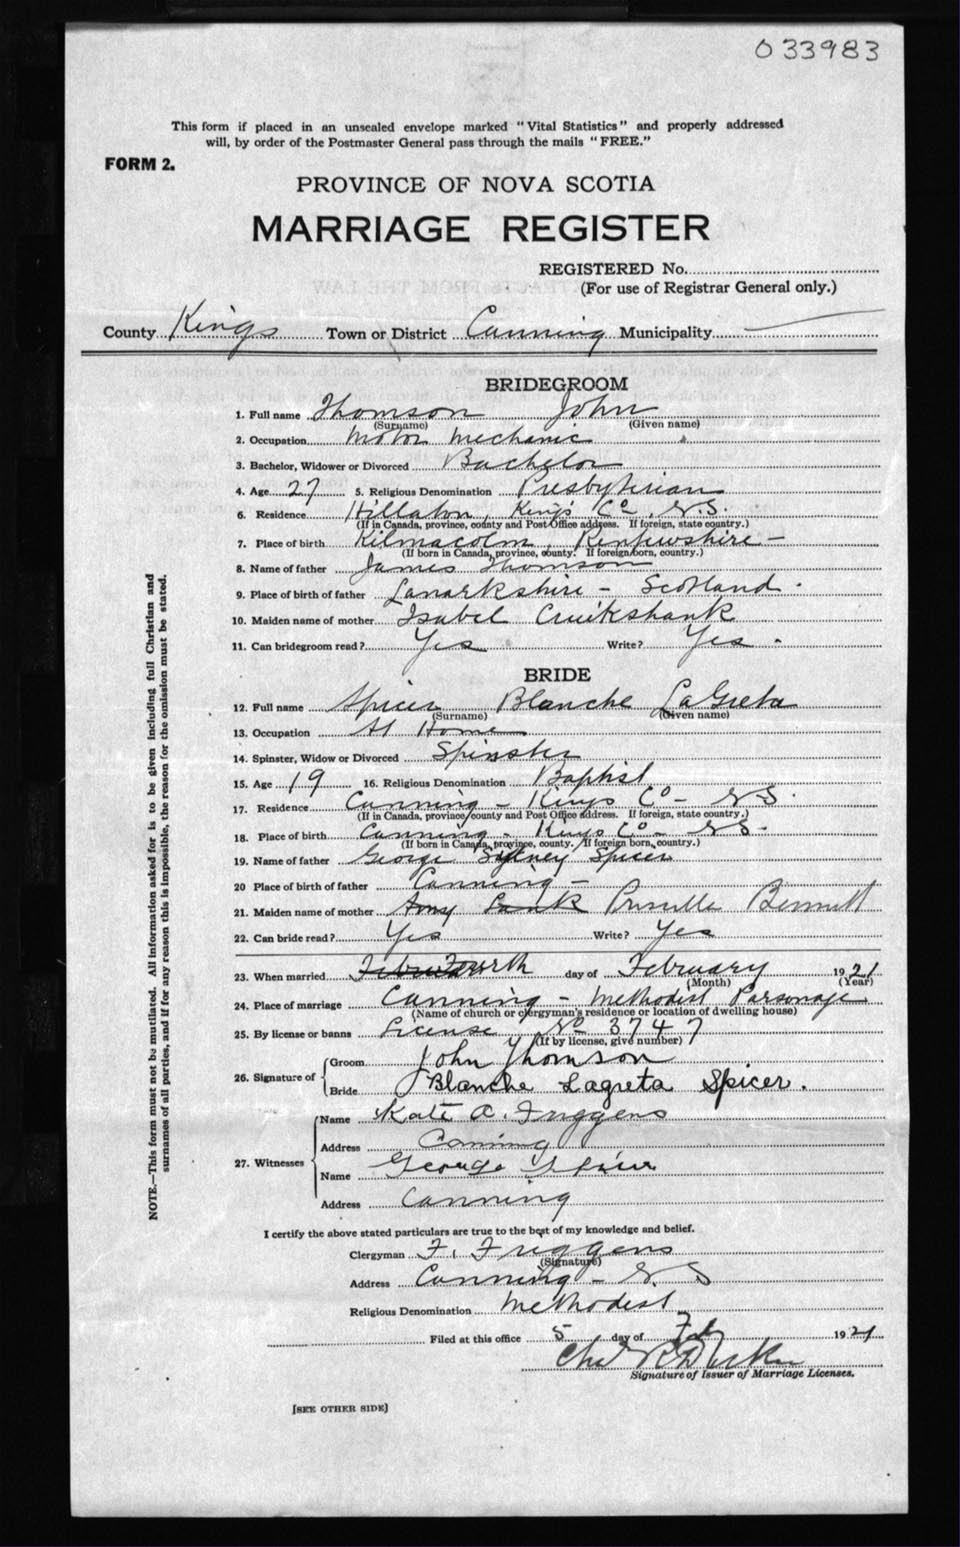 033983
This form if placed in an unsealed envelope marked "Vital Statistics" and properly addressed
will, by order of the Postmaster General pass through the mails "FREE."
FORM 2.
PROVINCE OF NOVA SCOTIA
MARRIAGE REGISTER
REGISTERED No.
(For use of Registrar General only.)
County Kings Town or District Canning Municipality
BRIDEGROOM
1. Full name Thomson John
(Surname) (Given name)
2. Occupation Motor Mechanic
3. Bachelor, Widower or Divorced Bachelor
4. Age 27 5. Religious Denomination Presbyterian
6. Residence Hillaton, King's Co. N.S.
(If in Canada, province, county and Post Office address. If foreign, state country.)
7. Place of birth Kilmacolm Renfewshire -
(If born in Canada, province, county. If foreign born, country.)
8. Name of father James Thomson
9. Place of birth of father Lanarkshire - Scotland
10. Maiden name of mother Isabel Cruikshank
11. Can bridegroom read? Yes Write? Yes
BRIDE
12. Full name Spicer Blanche LaGreta
(Surname) (Given name)
13. Occupation At Home
14. Spinster, Widow or Divorced Spinster
15. Age 19 16. Religious Denomination Baptist
17. Residence Canning - Kings Co - N.S.
(If in Canada, province, county and Post Office address. If foreign, state country.)
18. Place of birth Canning - Kings Co - N.S.
(If born in Canada, province, county. If foreign born, country.)
19. Name of father George Sydney Spicer
20 Place of birth of father Canning -
21. Maiden name of mother Amy Prusilla Bennett
22. Can bride read? Yes Write? Yes
23. When married Fourth day of February 1921
(Month) (Year)
24. Place of marriage Canning - Methodist Parsonage
(Name of church or clergyman's residence or location of dwelling house)
25. By license or banns License No 3747
(If by license, give number)
26. Signature of
Groom John Thomson
Bride Blanche Lagreta Spicer.
27. Witnesses
Name Kate A. Friggens
Address Canning
Name George Spicer
Address Canning
I certify the above stated particulars are true to the best of my knowledge and belief.
Clergyman F. Friggens
(Signature)
Address Canning - N.S
Religious Denomination Methodist
Filed at this office 5 day of Feb 1921
Signature of Issuer of Marriage Licenses.
[SEE OTHER SIDE]
NOTE.—This form must not be mutilated. All informations asked for is to be given including full Christian and
surnames of all parties, and if for any reason this is impossible, the reason for the omission must be stated.